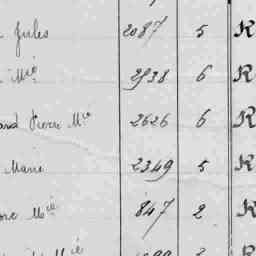 Jules 2087 5 R
Mie 2938 6 R
Pierre Mie 2626 6 R
Marie 2349 5 R
Mie 847 2 R